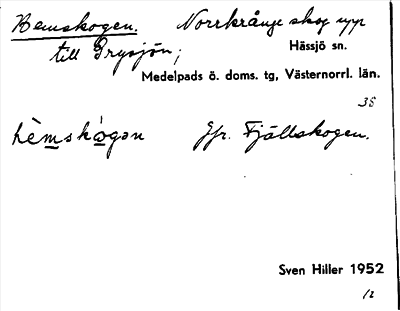 Hemskogen. Norrkrånge skog upp
till Grysjön;
Hässjö sn.
Medelpads ö. doms. tg, Västernorrl. län.
38
hèmskògən Jfr. Fjällskogen.
Sven Hiller 1952
12